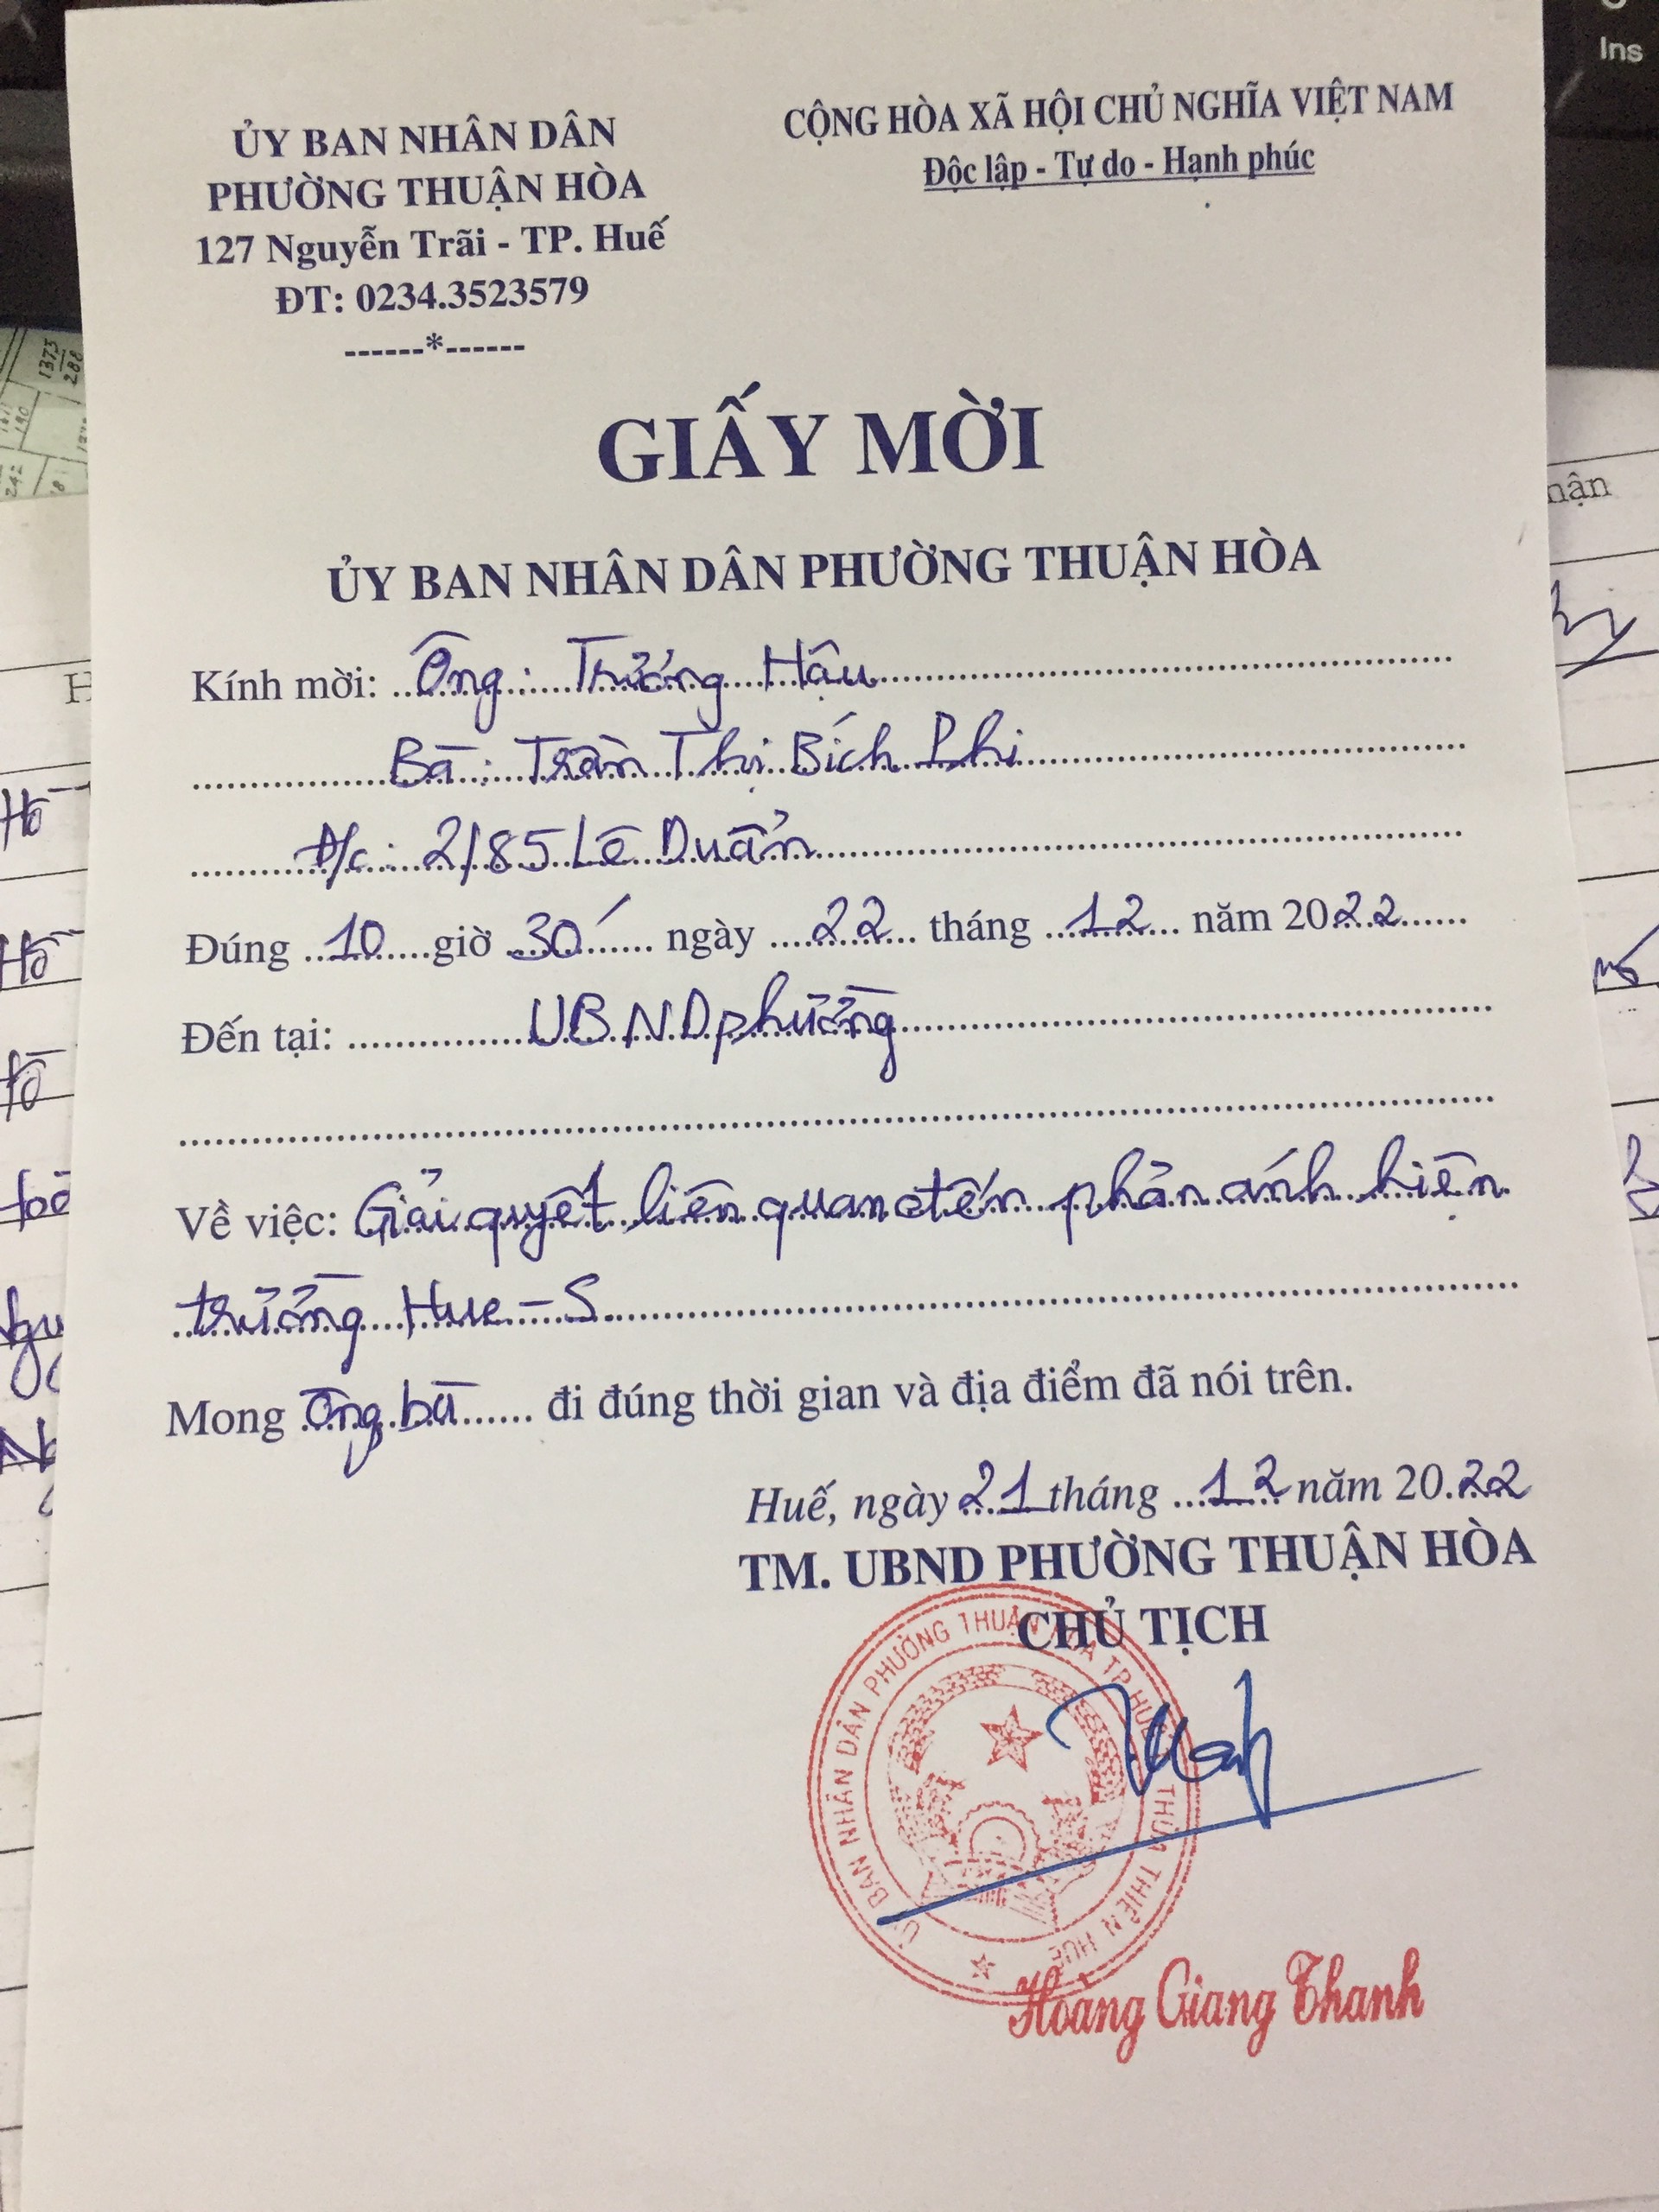 ỦY BAN NHÂN DÂN
PHƯỜNG THUẬN HÒA
127 Nguyễn Trãi - TP. Huế
ĐT: 0234.3523579
------*------
CỘNG HÒA XÃ HỘI CHỦ NGHĨA VIỆT NAM
Độc lập - Tự do - Hạnh phúc
GIẤY MỜI
ỦY BAN NHÂN DÂN PHƯỜNG THUẬN HÒA
Kính mời: Ông: Trương Hậu
Bà: Trần Thị Bích Phi
Đ/c: 2/85 Lê Duẩn
Đúng 10 giờ 30' ngày 22 tháng 12 năm 2022
Đến tại: UBND phường
Về việc: Giải quyết liên quan đến phản ánh hiện
trường Hue-S
Mong Ông bà đi đúng thời gian và địa điểm đã nói trên.
Huế, ngày 21 tháng 12 năm 2022
TM. UBND PHƯỜNG THUẬN HÒA
CHỦ TỊCH
ỦY BAN NHÂN DÂN PHƯỜNG THUẬN HÒA TP HUẾ THỪA THIÊN HUẾ
Hoàng Giang Thanh
Ins